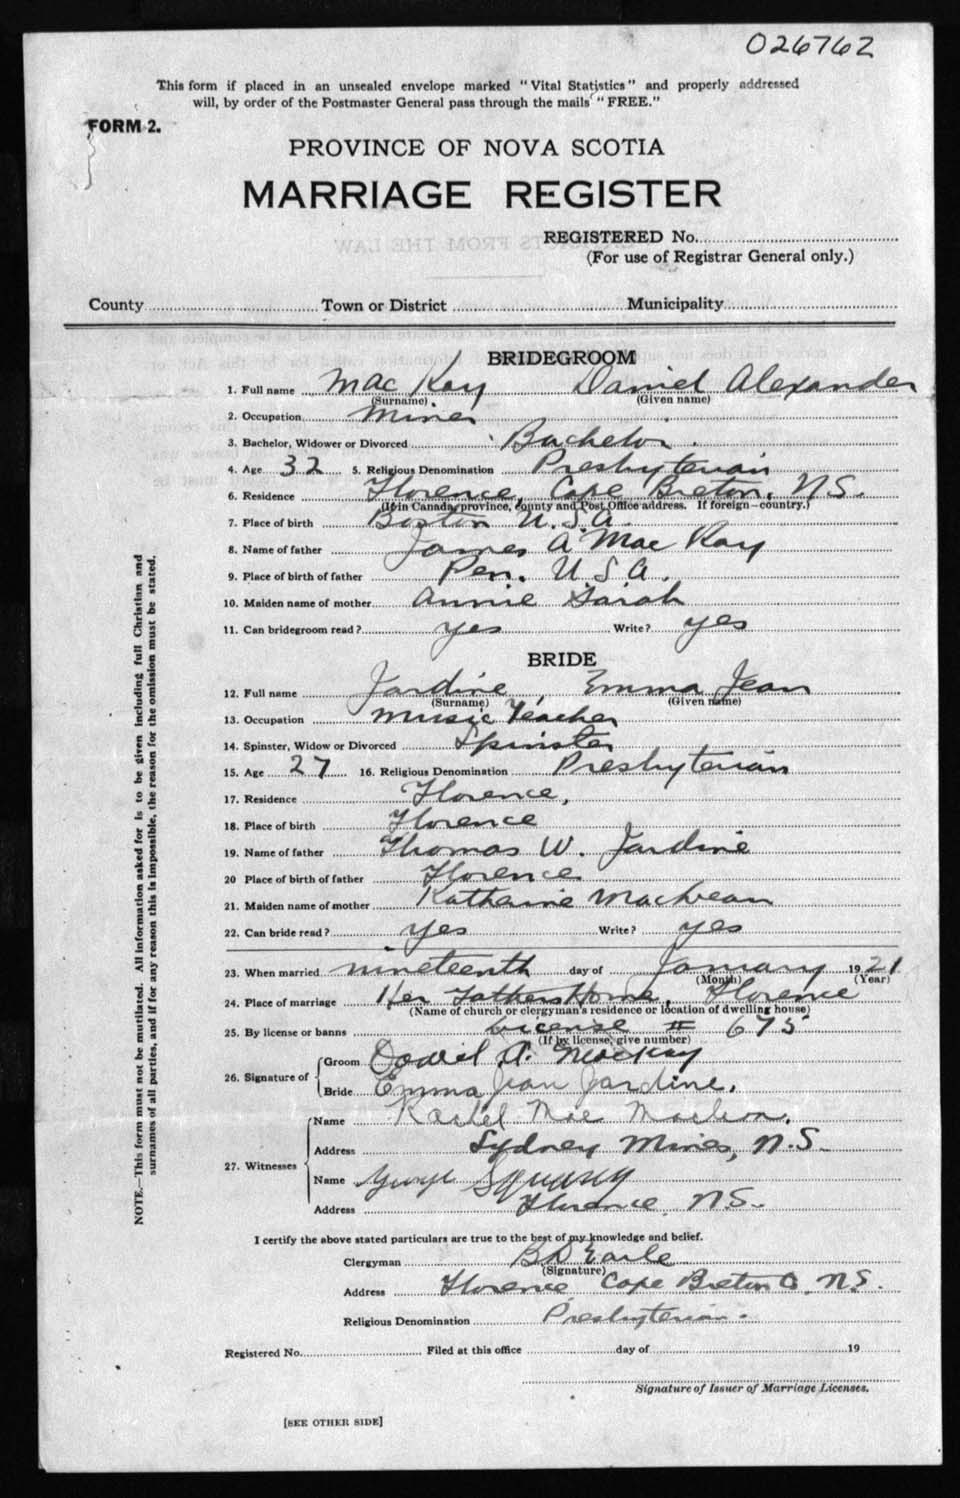 026762
This form if placed in an unsealed envelope marked "Vital Statistics" and properly addressed
will, by order of the Postmaster General pass through the mails "FREE."
FORM 2.
PROVINCE OF NOVA SCOTIA
MARRIAGE REGISTER
REGISTERED No.
(For use of Registrar General only.)
County Town or District Municipality
BRIDEGROOM
1. Full name Mac Kay Daniel Alexander
(Surname) (Given name)
2. Occupation Miner
3. Bachelor, Widower or Divorced Bachelor
4. Age 32 5. Religious Denomination Presbyterian
6. Residence Florence, Cape Breton, N.S.
(If in Canada, province, county and Post Office address. If foreign—country.)
7. Place of birth Boston U.S.A.
8. Name of father James A. Mac Kay
9. Place of birth of father Pen. U.S.A.
10. Maiden name of mother Annie Sarah
11. Can bridegroom read? yes Write? yes
BRIDE
12. Full name Jardine, Emma Jean
(Surname) (Given name)
13. Occupation Music Teacher
14. Spinster, Widow or Divorced Spinster
15. Age 27 16. Religious Denomination Presbyterian
17. Residence Florence,
18. Place of birth Florence
19. Name of father Thomas W. Jardine
20 Place of birth of father Florence
21. Maiden name of mother Katharine
22. Can bride read? yes Write? yes
23. When married nineteenth day of January 1921
(Month) (Year)
24. Place of marriage Her Fathers Home, Florence
(Name of church or clergyman's residence or location of dwelling house)
25. By license or banns License # 675
(If by license, give number)
26. Signature of
Groom Daniel A. MacKay
Bride Emma Jean Jardine.
27. Witnesses
Name Rachel Mae
Address Sydney Mines, N.S.
Name George
Address Florence, N.S.
I certify the above stated particulars are true to the best of my knowledge and belief.
Clergyman B D Earle
(Signature)
Address Florence Cape Breton Co. N.S.
Religious Denomination Presbyterian.
Registered No. Filed at this office day of 19
Signature of Issuer of Marriage Licenses.
[SEE OTHER SIDE]
NOTE.—This form must not be mutilated. All information asked for is to be given including full Christian and
surnames of all parties, and if for any reason this is impossible, the reason for the omission must be stated.